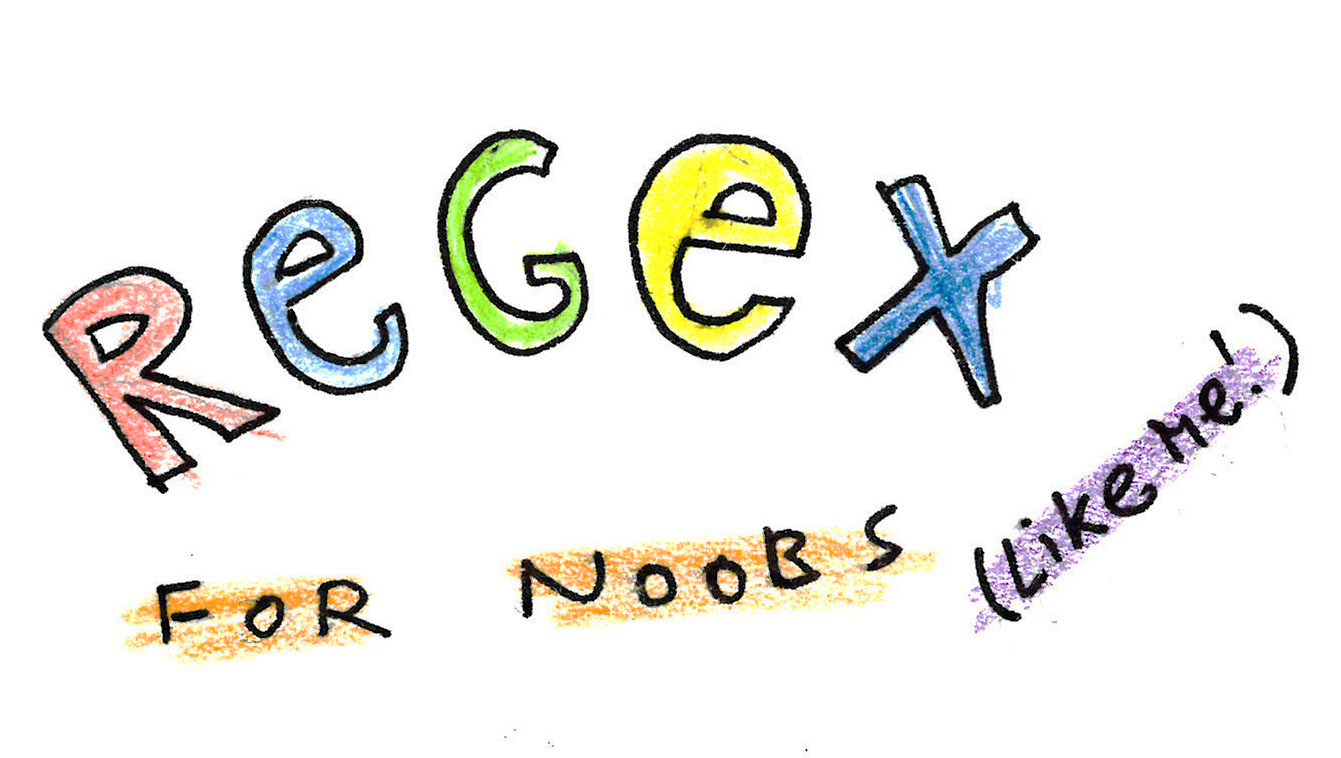 ReGex
FOR NOOBS
(Like Me!)